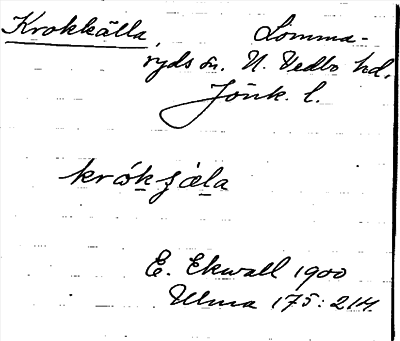 Krokkälla, Lomma-
ryds sn. N. Vedbo hd.
Jönk. l.
krókʂäla
E. Ekwall 1900
Ulma 175: 214.